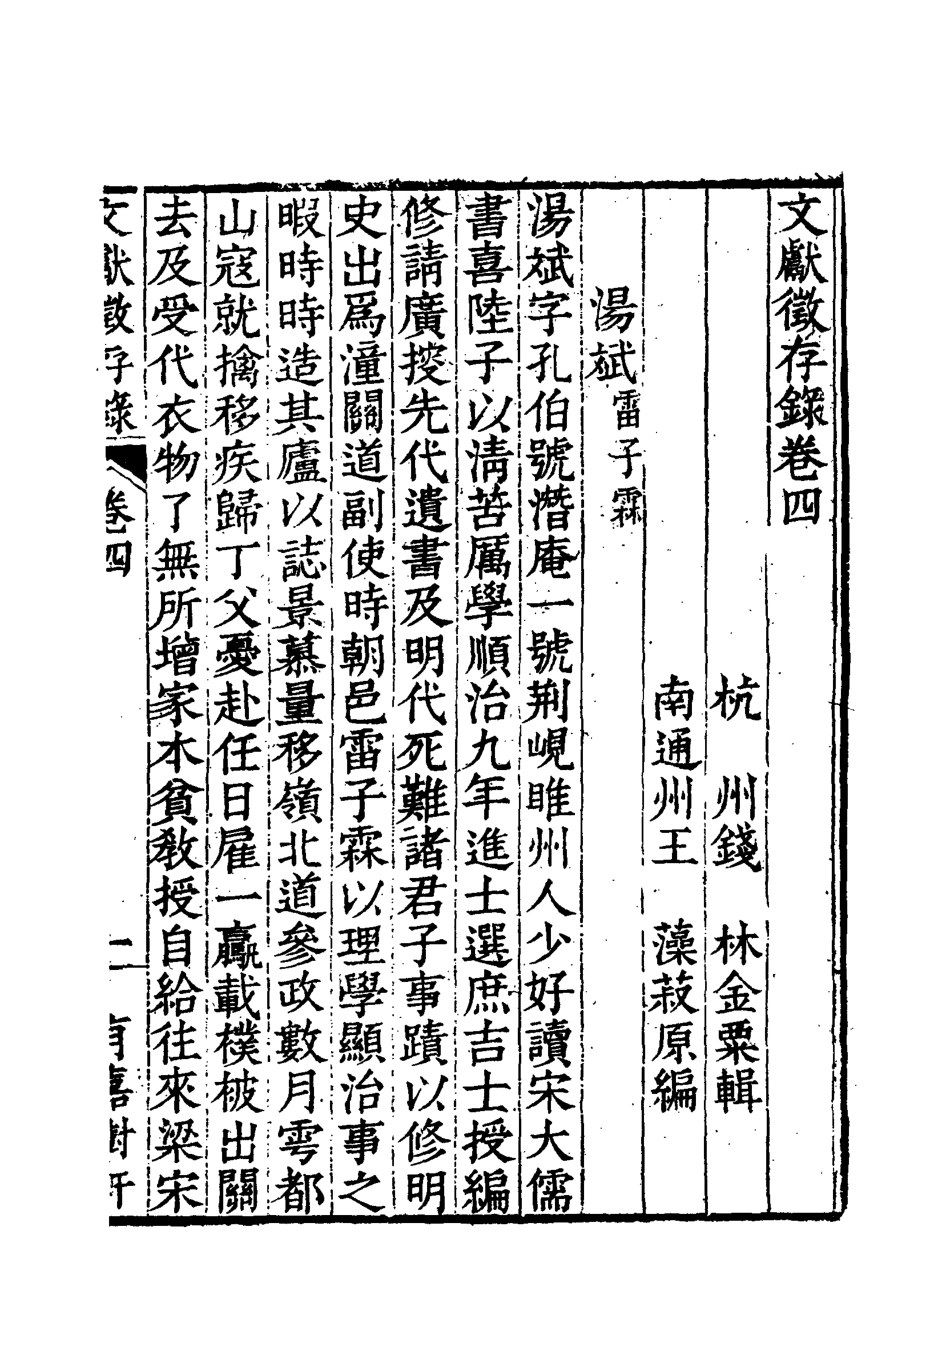 文獻徵存錄卷四
杭 州錢 林金粟輯
南通州王 藻菽原編
湯斌雷子霖
湯斌字孔伯號潛庵一號荆峴睢州人少好讀宋大儒
書喜陸子以淸苦厲學順治九年進士選庶吉士授編
修請廣搜先代遺書及明代死難諸君子事蹟以修明
史出爲潼關道副使時朝邑雷子霖以理學顯治事之
暇時時造其廬以誌景慕量移嶺北道參政數月雩都
山寇就擒移疾歸丁父憂赴任日雇一驘載樸被出關
去及受代衣物了無所增家本貧敎授自給往來梁宋
文獻徵存錄 卷四 一 有嘉樹軒